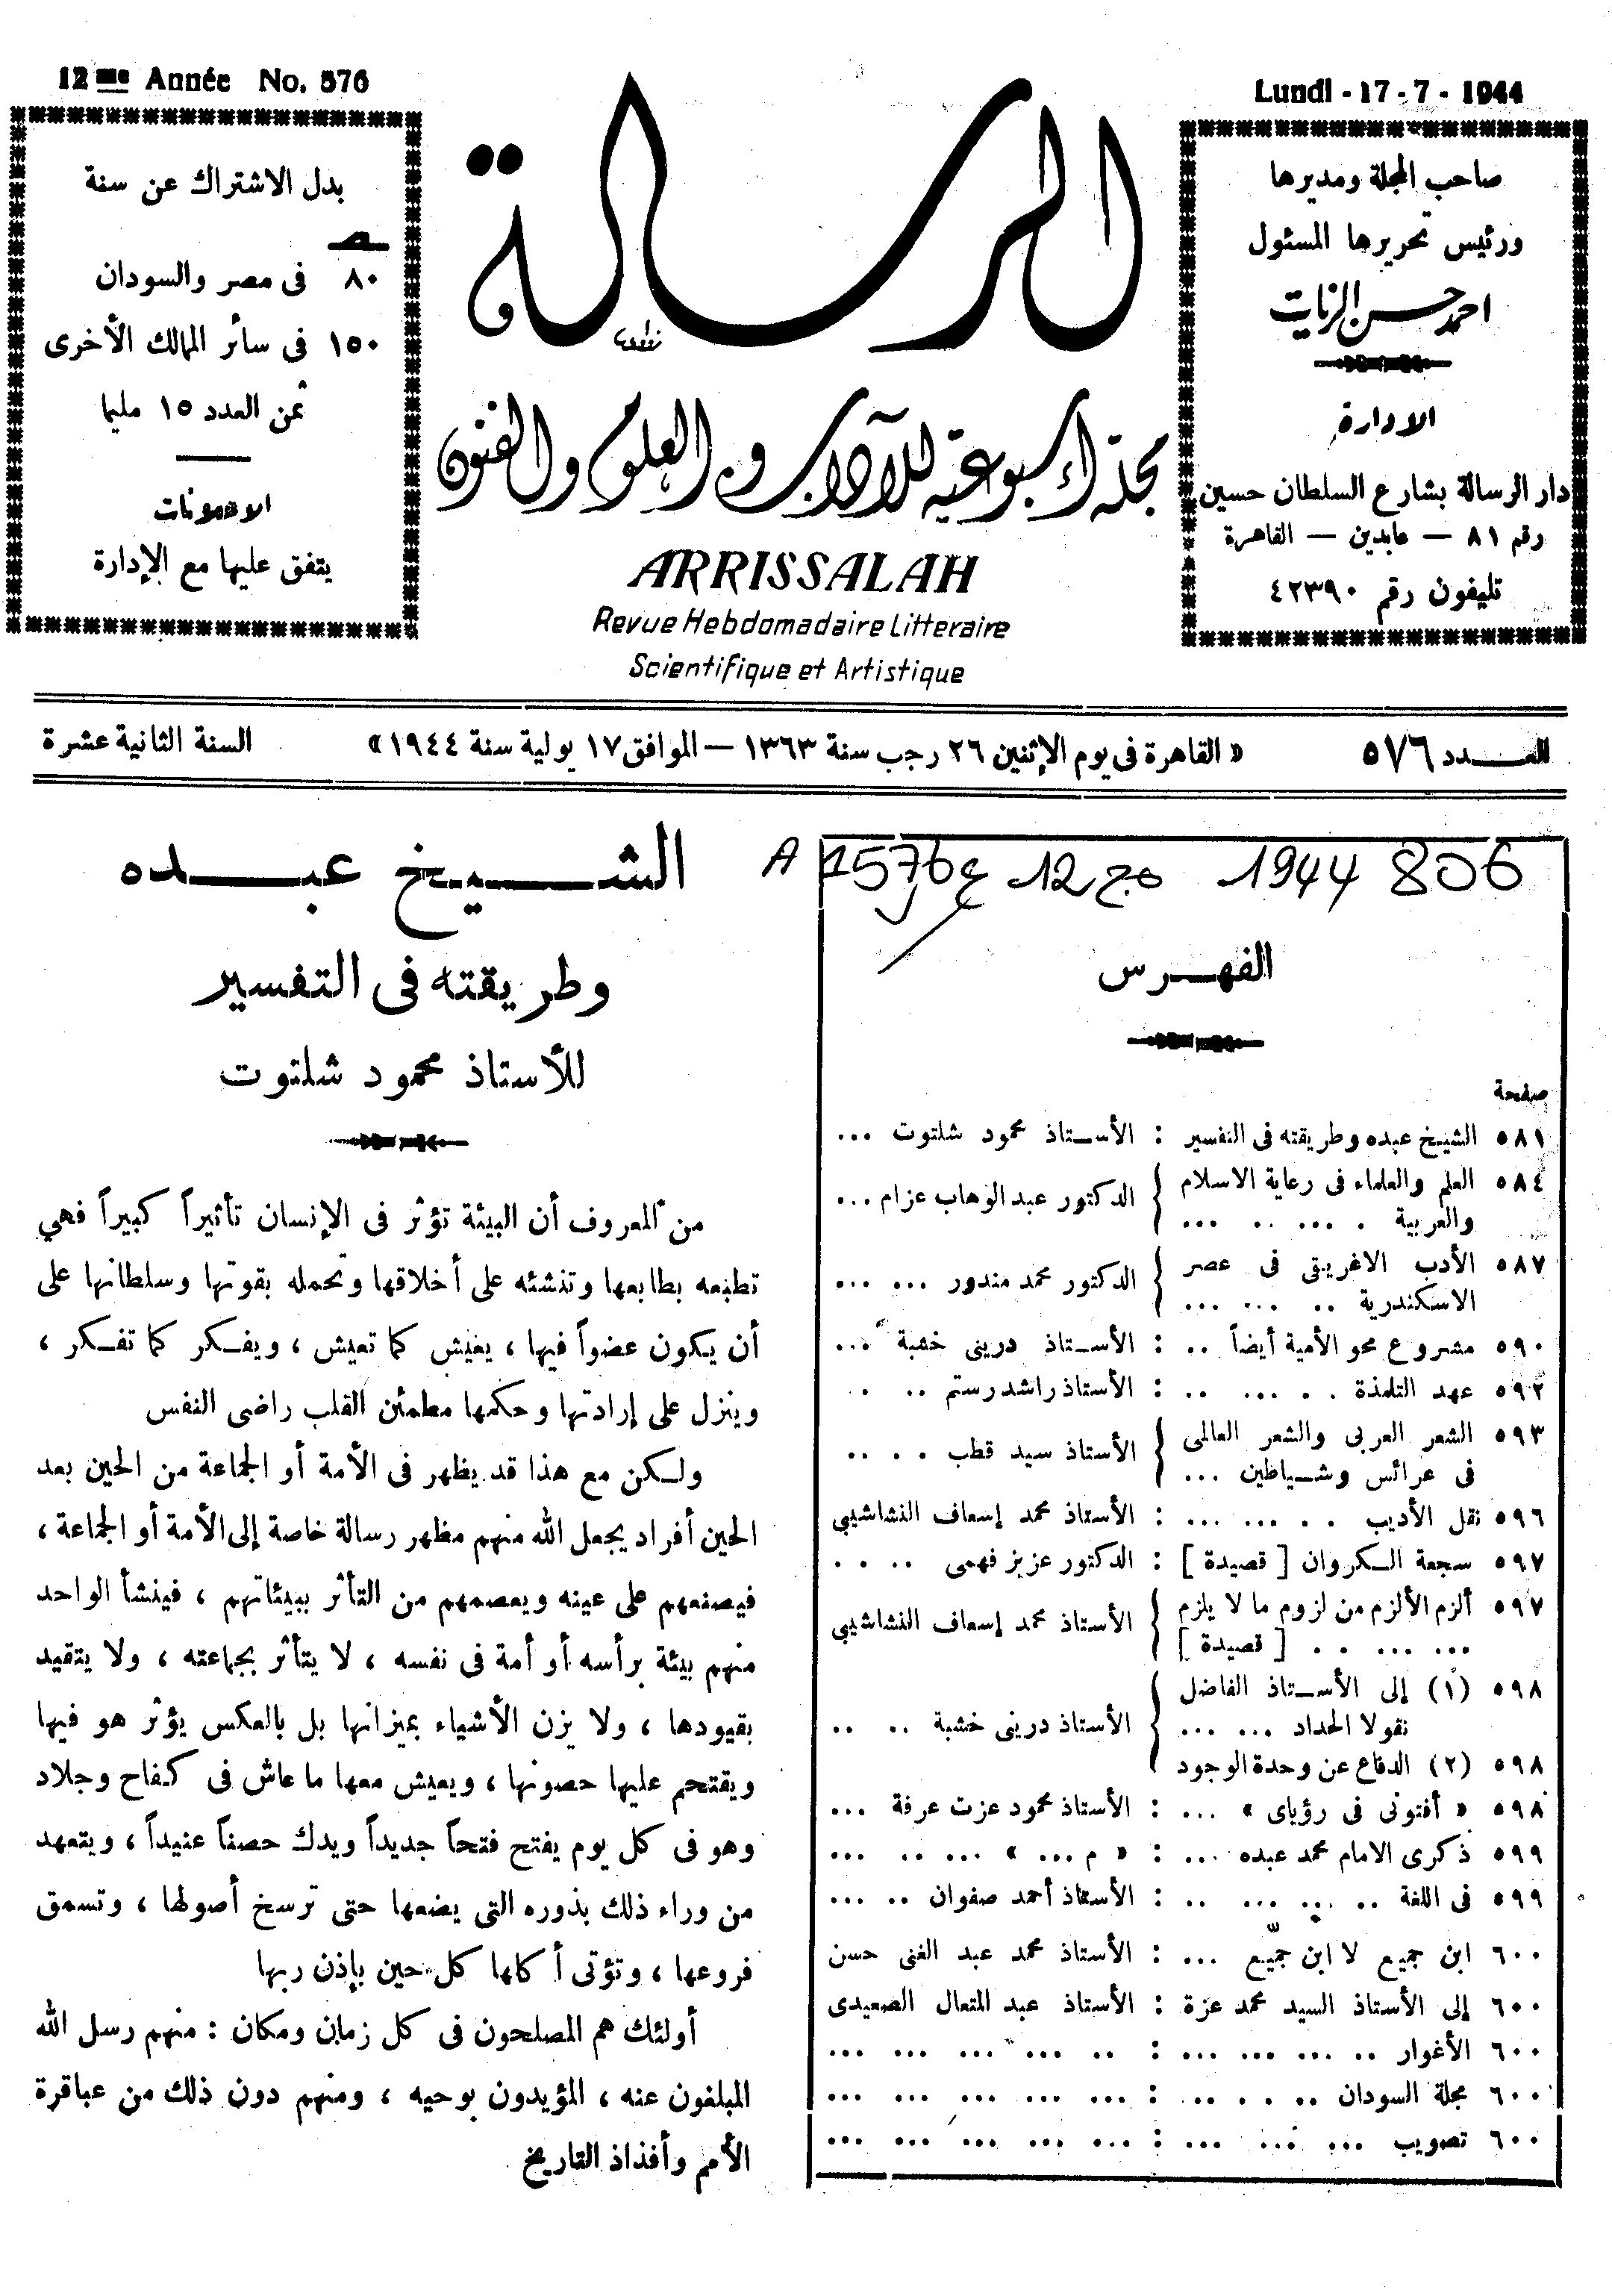 12me Année No. 576
Lundi - 17 - 7 - 1944
صاحب المجلة ومديرها
ورئيس تحريرها المسئول
احمد حسن الزيات
الادارة
دار الرسالة بشارع السلطان حسين
رقم ٨١ — عابدين — القاهرة
تليفون رقم ٤٢٣٩٠
الرسالة
مجلة أسبوعية للآداب والعلوم والفنون
ARRISSALAH
Revue Hebdomadaire Litteraire
Scientifique et Artistique
بدل الاشتراك عن سنة
ص
٨٠ فى مصر والسودان
١٥٠ فى سائر الممالك الأخرى
ثمن العدد ١٥ مليما
الاعلانات
يتفق عليها مع الإدارة
العـــدد ٥٧٦ « القاهرة فى يوم الإثنين ٢٦ رجب سنة ١٣٦٣ — الموافق ١٧ يولية سنة ١٩٤٤ » السنة الثانية عشرة
A 1576 ع 12 مج 1944 806
الفهـرس
صفحة
٥٨١ الشيخ عبده وطريقته فى التفسير : الأستاذ محمود شلتوت ...
٥٨٤ العلم والعلماء فى رعاية الاسلام
والعربية . ... .. ... } الدكتور عبد الوهاب عزام ...
٥٨٧ الأدب الاغريقى فى عصر
الاسكندرية .. ... ... } الدكتور محمد مندور ... ...
٥٩٠ مشروع محو الأمية أيضاً .. : الأستاذ درينى خشبة ...
٥٩٢ عهد التلمذة . . ... .. : الأستاذ راشد رستم .. .
٥٩٣ الشعر العربى والشعر العالمى
فى عرائس وشياطين ... } الأستاذ سيد قطب . . ..
٥٩٦ نقل الأديب . . ... ... : الأستاذ محمد إسعاف النشاشيبى
٥٩٧ سجعة الكروان [ قصيدة ] : الدكتور عزيز فهمى .. . .
٥٩٧ ألزم الألزم من لزوم ما لا يلزم
[ قصيدة ] . . ... ... } الأستاذ محمد إسعاف النشاشيبى
٥٩٨ (١) إلى الأستاذ الفاضل
نقولا الحداد ... ...
٥٩٨ (٢) الدفاع عن وحدة الوجود } الأستاذ درينى خشبة .. ..
٥٩٨ « أفتونى فى رؤياى » ... : الأستاذ محمود عزت عرفة ...
٥٩٩ ذكرى الامام محمد عبده ... : « م ... » ... .. ...
٥٩٩ فى اللغة .. ... ... .. : الأستاذ أحمد صفوان .. ...
٦٠٠ ابن جميع لا ابن جمّيع ... : الأستاذ محمد عبد الغنى حسن
٦٠٠ إلى الأستاذ السيد محمد عزة : الأستاذ عبد المتعال الصعيدى
٦٠٠ الأغوار .. ... ... ... : .. ... ... ... ...
٦٠٠ مجلة السودان .. . . .. : ... ... ... ... ...
٦٠٠ تصويب ... ... ... : ... ... ... ... ...
الشـــيخ عبـــده
وطريقته فى التفسير
للأستاذ محمود شلتوت
من المعروف أن البيئة تؤثر فى الإنسان تأثيراً كبيراً فهي
تطبعه بطابعها وتنشئه على أخلاقها وتحمله بقوتها وسلطانها على
أن يكون عضواً فيها ، يعيش كما تعيش ، ويفكر كما تفكر ،
وينزل على إرادتها وحكمها مطمئن القلب راضى النفس
ولكن مع هذا قد يظهر فى الأمة أو الجماعة من الحين بعد
الحين أفراد يجعل الله منهم مظهر رسالة خاصة إلى الأمة أو الجماعة ،
فيصنعهم على عينه ويعصمهم من التأثر ببيئاتهم ، فينشأ الواحد
منهم بيئة برأسه أو أمة فى نفسه ، لا يتأثر بجماعته ، ولا يتقيد
بقيودها ، ولا يزن الأشياء بميزانها بل بالعكس يؤثر هو فيها
ويقتحم عليها حصونها ، ويعيش معها ما عاش فى كفاح وجلاد
وهو فى كل يوم يفتح فتحاً جديداً ويدك حصناً عنيداً ، ويتعهد
من وراء ذلك بذوره التى يضعها حتى ترسخ أصولها ، وتسمق
فروعها ، وتؤتى أكلها كل حين بإذن ربها
أولئك هم المصلحون فى كل زمان ومكان : منهم رسل الله
المبلغون عنه ، المؤيدون بوحيه ، ومنهم دون ذلك من عباقرة
الأمم وأفذاذ التاريخ